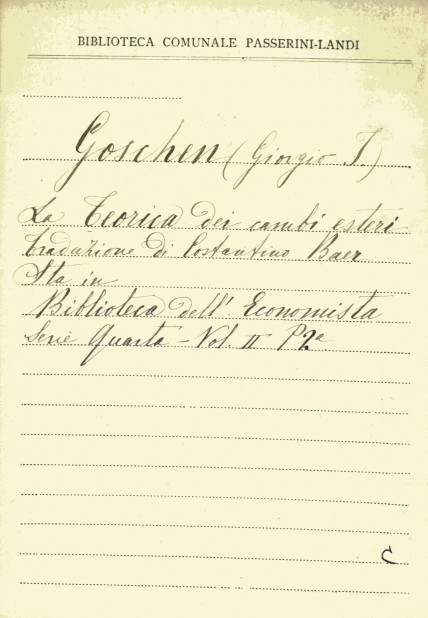 BIBLIOTECA COMUNALE PASSERINI-LANDI
Goschen (Giorgio J.)
La Teorica dei cambi esteri
traduzione di Costantino Baer
Sta in
Biblioteca dell' Economista
Serie Quarta - Vol. II P 2a
C